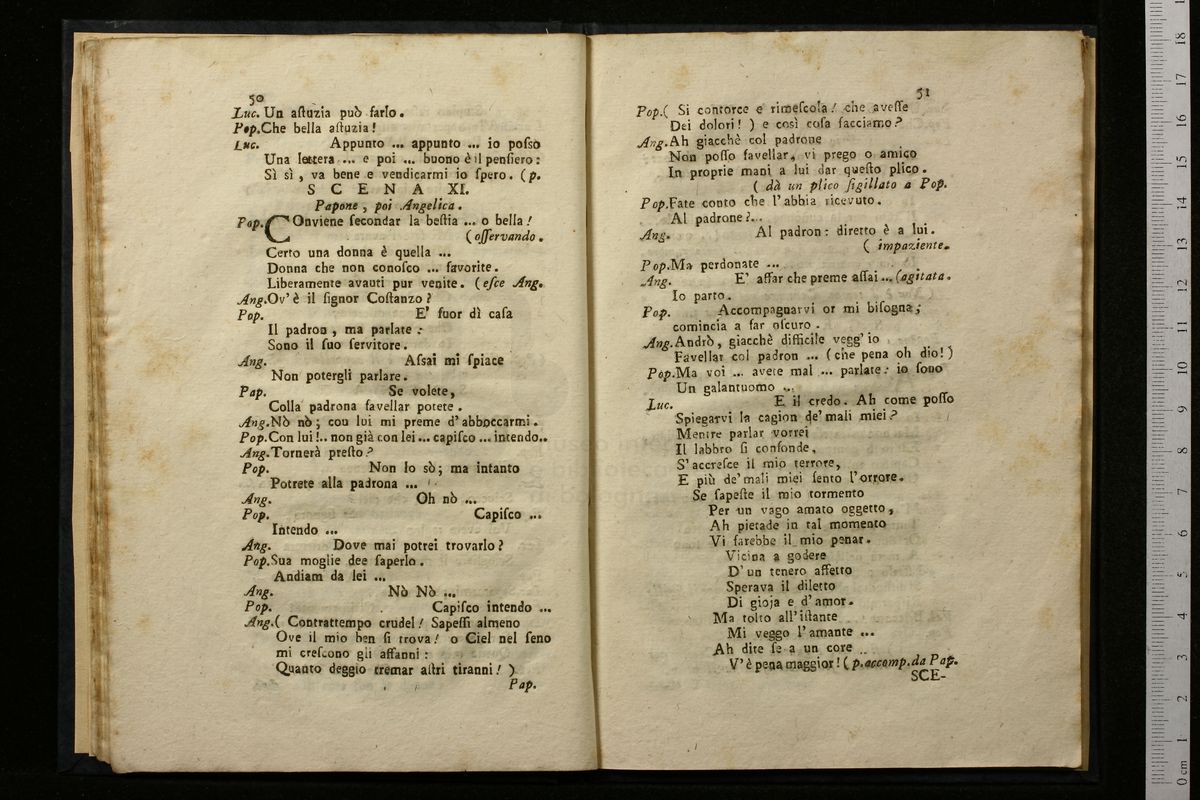 50
Luc. Un aſtuzia può farlo.
Pop. Che bella aſtuzia!
Luc. Appunto ... appunto ... io poſso
Una lettera ... e poi ... buono è il penſiero:
Sì sì, va bene e vendicarmi io ſpero. (p.
SCENA XI.
Papone, poi Angelica.
Pop. COnviene ſecondar la beſtia ... o bella!
(oſſervando.
Certo una donna è quella ...
Donna che non conoſco ... favorite.
Liberamente avanti pur venite. (eſce Ang.
Ang. Ov' è il ſignor Coſtanzo?
Pop. E' fuor dì caſa
Il padron, ma parlate:
Sono il ſuo ſervitore.
Ang. Aſsai mi ſpiace
Non potergli parlare.
Pap. Se volete,
Colla padrona favellar potete.
Ang. Nò nò; con lui mi preme d'abboccarmi.
Pop. Con lui!.. non già con lei ... capiſco ... intendo..
Ang. Tornerà preſto?
Pop. Non lo sò; ma intanto
Potrete alla padrona ...
Ang. Oh nò ...
Pop. Capiſco ...
Intendo ...
Ang. Dove mai potrei trovarlo?
Pop. Sua moglie dee ſaperlo.
Andiam da lei ...
Ang. Nò Nò ...
Pop. Capiſco intendo ...
Ang. ( Contrattempo crudel! Sapeſſi almeno
Ove il mio ben ſi trova! o Ciel nel ſeno
mi creſcono gli affanni:
Quanto deggio tremar aſtri tiranni! )
Pap.
51
Pop. ( Si contorce e rimeſcola! che aveſſe
Dei dolori! ) e così coſa facciamo?
Ang. Ah giacchè col padrone
Non poſſo favellar, vi prego o amico
In proprie mani a lui dar queſto plico.
( dà un plico ſigillato a Pop.
Pop. Fate conto che l'abbia ricevuto.
Al padrone?...
Ang. Al padron: diretto è a lui.
( impaziente.
Pop. Ma perdonate ...
Ang. E' affar che preme aſſai ... (agitata.
Io parto.
Pop. Accompagnarvi or mi biſogna;
comincia a far oſcuro.
Ang. Andrò, giacchè difficile vegg' io
Favellar col padron ... (che pena oh dio!)
Pop. Ma voi ... avete mal ... parlate: io ſono
Un galantuomo ...
Luc. E il credo. Ah come poſſo
Spiegarvi la cagion de' mali miei?
Mentre parlar vorrei
Il labbro ſi confonde,
S' accreſce il mio terrore,
E più de' mali miei ſento l'orrore.
Se ſapeſte il mio tormento
Per un vago amato oggetto,
Ah pietade in tal momento
Vi farebbe il mio penar.
Vicina a godere
D' un tenero affetto
Sperava il diletto
Di gioja e d' amor.
Ma tolto all' iſtante
Mi veggo l' amante ...
Ah dite ſe a un core
V' è pena maggior! (p. accomp. da Pap.
SCE-